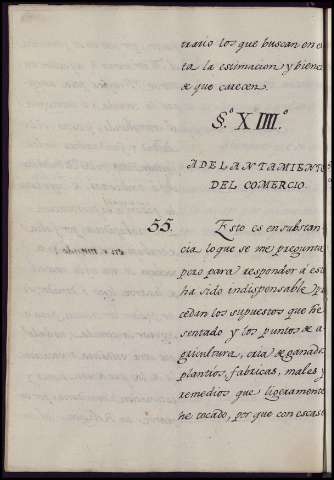 trario los que buscan en es
ta la estimacion y biene
de que carecen.
§.º XIIII.º
ADELANTAMIENTO
DEL COMERCIO.
55. Esto es en substan
cia lo que se me pregunta
pero para responder á est
ha sido indispensable pre
cedan los supuestos que he
sentado y los puntos de a
gricultura, cria de ganado
plantios, fabricas, males y
remedios que ligeramente
he tocado, por que con escas